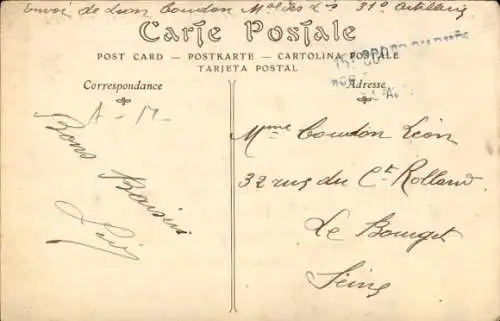 Envoi de Léon Coudon Mal des Lis 31e Artillerie
Carte Postale
POST CARD - POSTKARTE - CARTOLINA POSTALE
TARJETA POSTAL
Correspondance
Adresse
Bons Baisers
Mme Coudon Léon
32 rue du Ct Rolland
Le Bourget
Seine